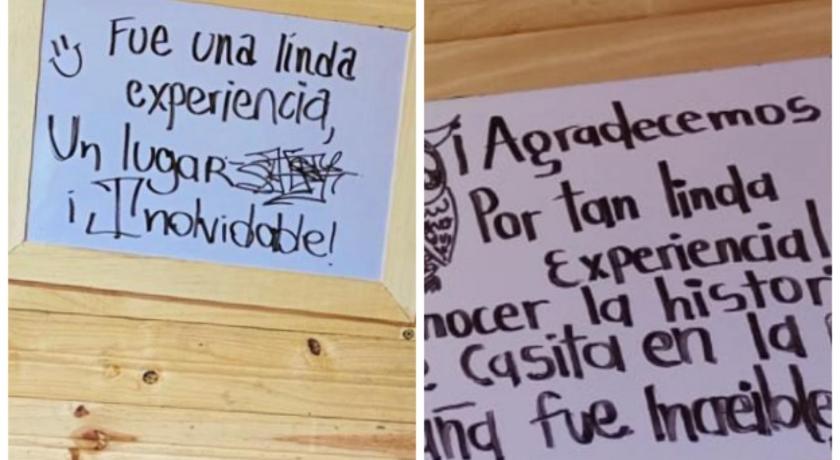 Fue una linda
experiencia,
Un lugar
¡Inolvidable!
¡Agradecemos
Por tan linda
Experiencia!
nocer la histori
Casita en la
fue Increible